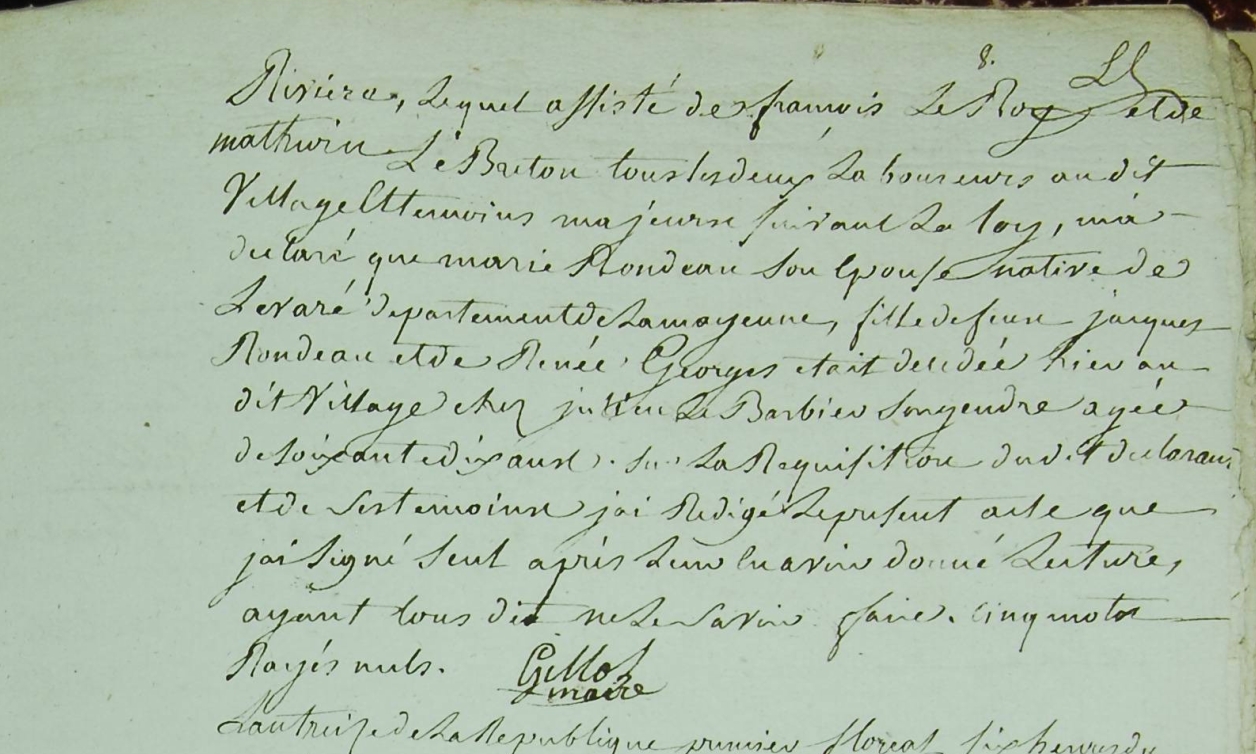 8.
Rivière, Lequel assisté de françois Le Roy et de
mathurin Le Breton tous les deux Laboureurs au dit
Village Et temoins majeurs suivant La loy, m'a
declaré que marie Rondeau son Epouse native de
Levaré departement de La mayenne, fille de feux jacques
Rondeau et de Renée Georges etait decedée hier au
dit Village chez julien Le Barbier son gendre agée
de soixante dix ans. sur La Requisition du dit declarant
et de ses temoins j'ai Redigé Le present acte que
j'ai signé seul après Leur En avoir donné Lecture,
ayant tous dit ne Le savoir faire. cinq mots
Rayés nuls. Gillot
maire
L'an treize de La Republique premier floreal six heures du